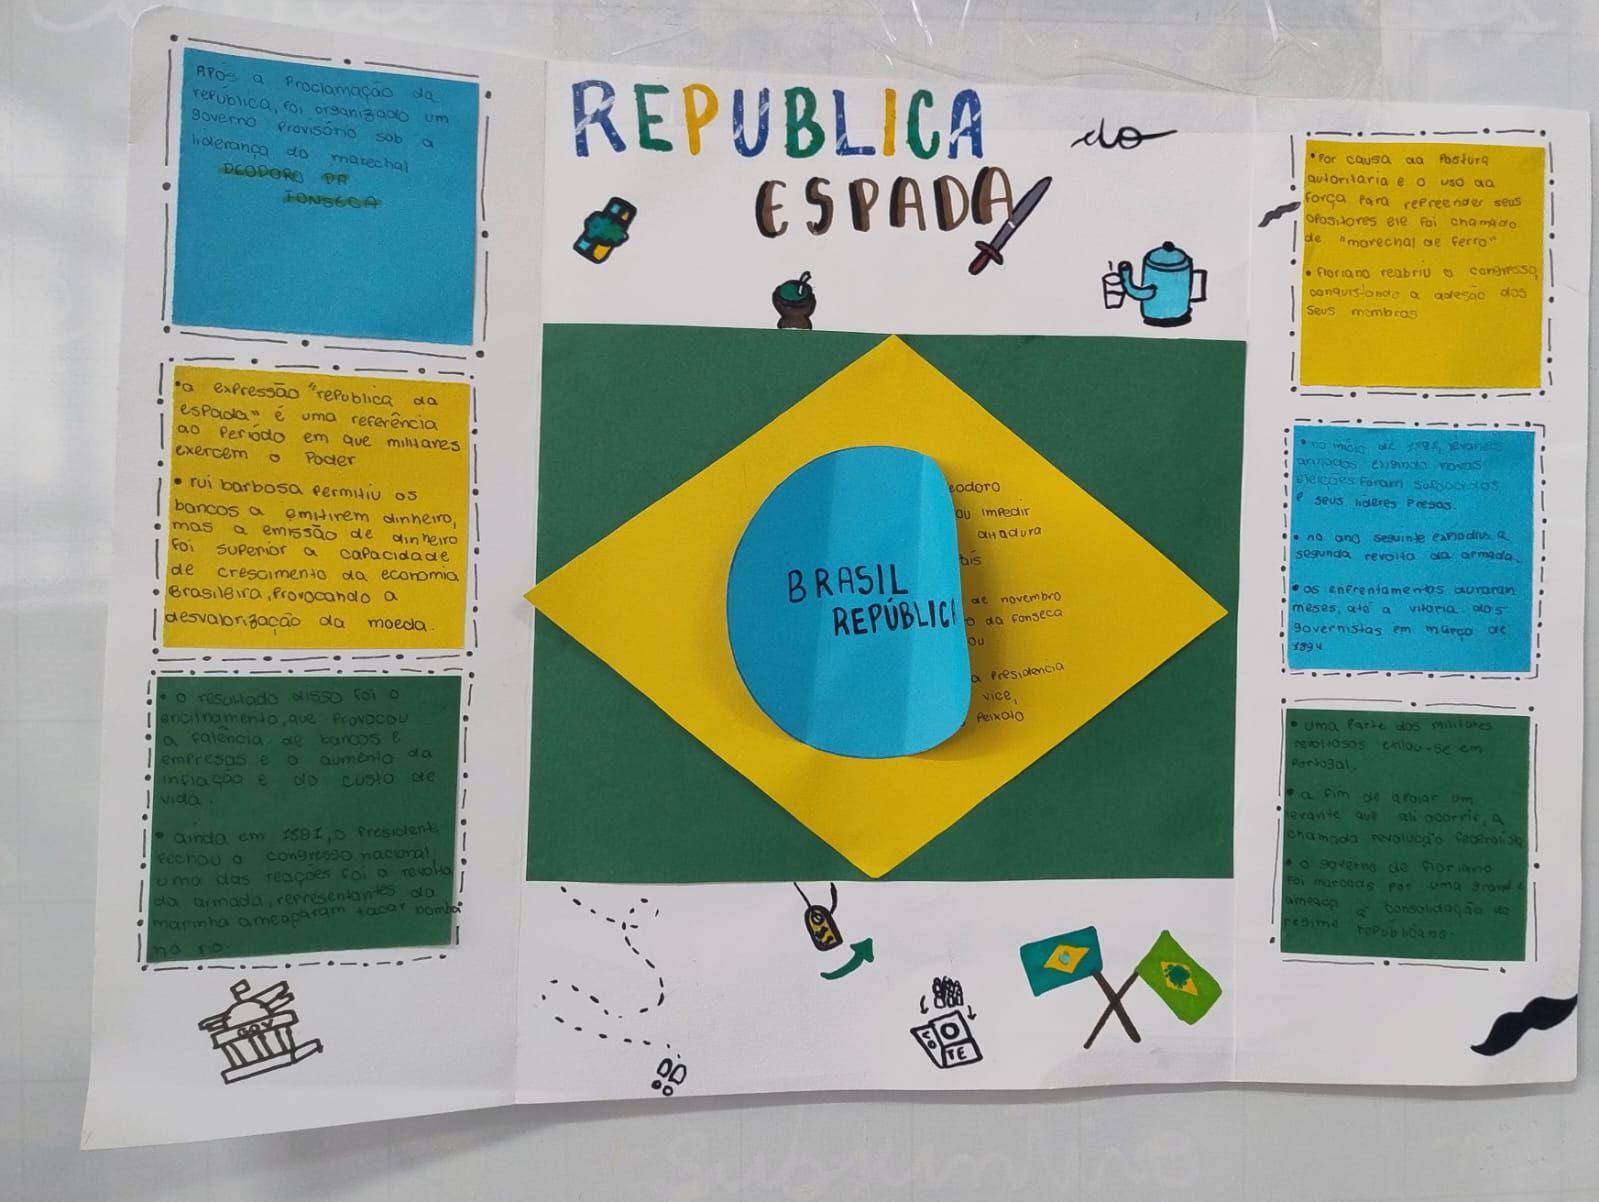 REPUBLICA da
ESPADA
APÓS a Proclamação da
república, foi organizado um
governo Provisório sob a
liderança do marechal
DEODORO DA
FONSECA
•a expressão "republica da
espada" é uma referência
ao Período em que militares
exercem o Poder
• rui barbosa Permitiu os
bancos a emitirem dinheiro,
mas a emissão de dinheiro
foi superior a capacidade
de crescimento da economia
Brasileira, Provocando a
desvalorização da moeda.
• o resultado disso foi o
encilhamento, que provocou
a falência de bancos e
empresas e o aumento da
inflação e do custo de
vida.
• ainda em 1891, o Presidente
fechou o congresso nacional,
uma das reações foi a revolta
da armada, representantes da
marinha ameaçaram tacar bomba
no rio.
BRASIL
REPÚBLIC
eodoro
ou impedir
ditadura
ais
de novembro
o da fonseca
ou
a Presidencia
vice,
Peixoto
•Por causa da Postura
autoritaria e o uso da
força Para repreender seus
opositores ele foi chamado
de "marechal de ferro"
• floriano reabriu o congresso,
conquistando a adesão dos
seus membros
• no início de 1892, levantes
armados exigindo novas
eleições foram
e seus lideres Presos.
• no ano seguinte explodiu a
segunda revolta da armada.
• os enfrentamentos duraram
meses, até a vitoria dos
governistas em março de
1894
• uma Parte dos militares
revoltosos exilou-se em
Portugal.
• a fim de apoiar um
levante que ali ocorria, a
chamada revolução federalista
• o governo de floriano
foi marcado por uma grande
ameaça a consolidação do
regime republicano.
GOV
VO
TE